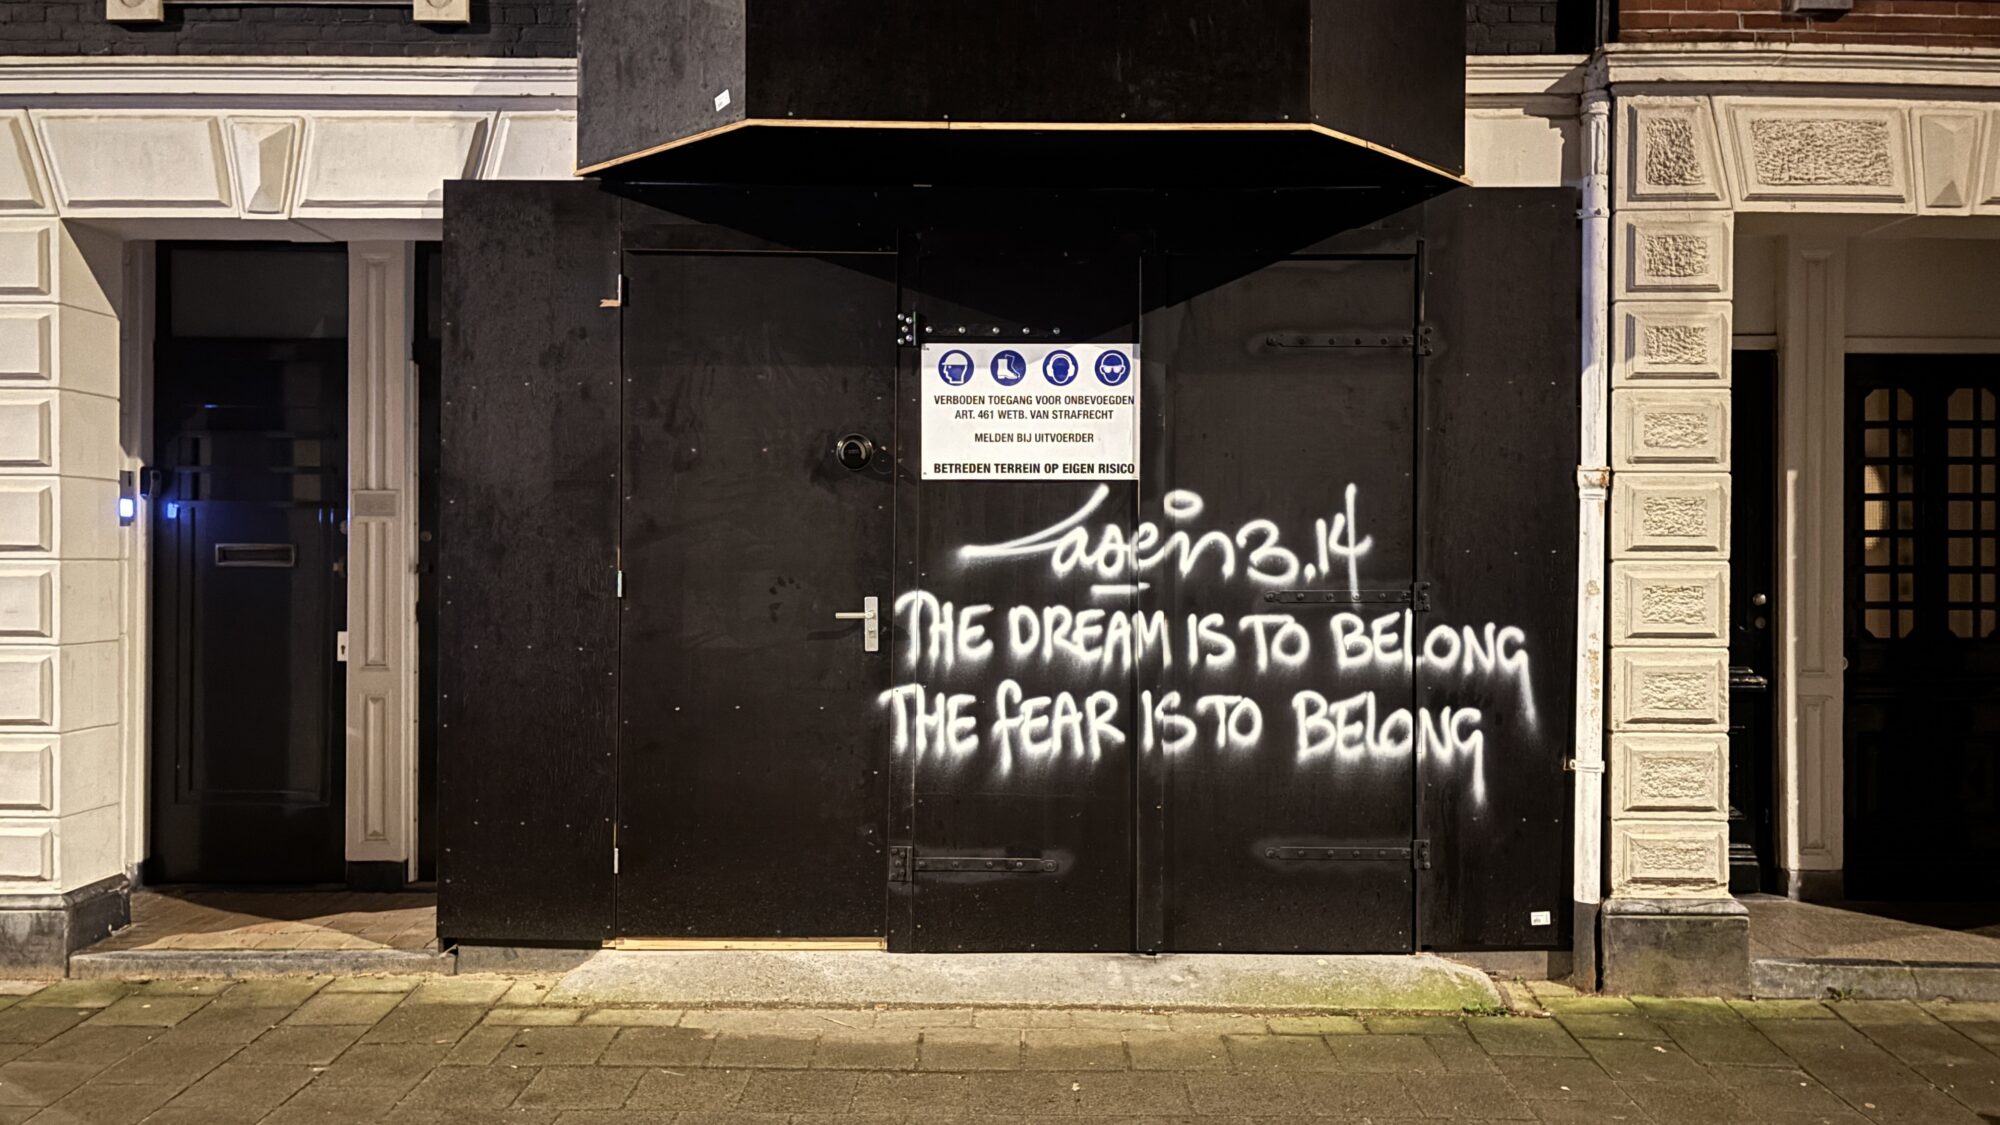 VERBODEN TOEGANG VOOR ONBEVOEGDEN
ART. 461 WETB. VAN STRAFRECHT
MELDEN BIJ UITVOERDER
BETREDEN TERREIN OP EIGEN RISICO
Laser 3.14
THE DREAM IS TO BELONG
THE FEAR IS TO BELONG